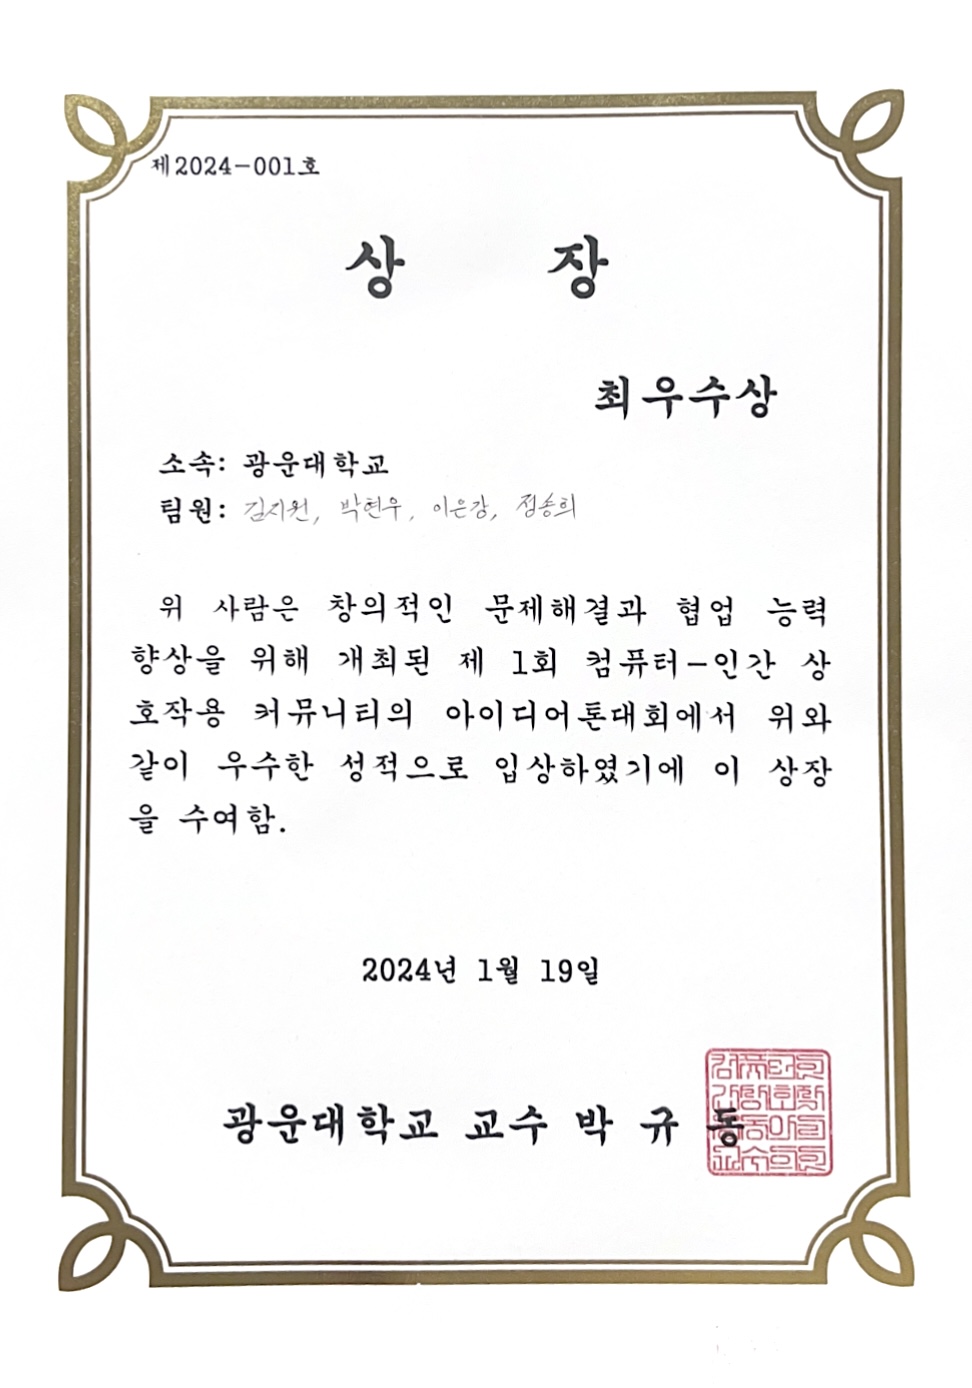 제2024-001호
상 장
최우수상
소속: 광운대학교
팀원: 김지원, 박현우, 이은강, 정송희
위 사람은 창의적인 문제해결과 협업 능력
향상을 위해 개최된 제 1회 컴퓨터-인간 상
호작용 커뮤니티의 아이디어톤대회에서 위와
같이 우수한 성적으로 입상하였기에 이 상장
을 수여함.
2024년 1월 19일
광운대학교 교수 박 규 동